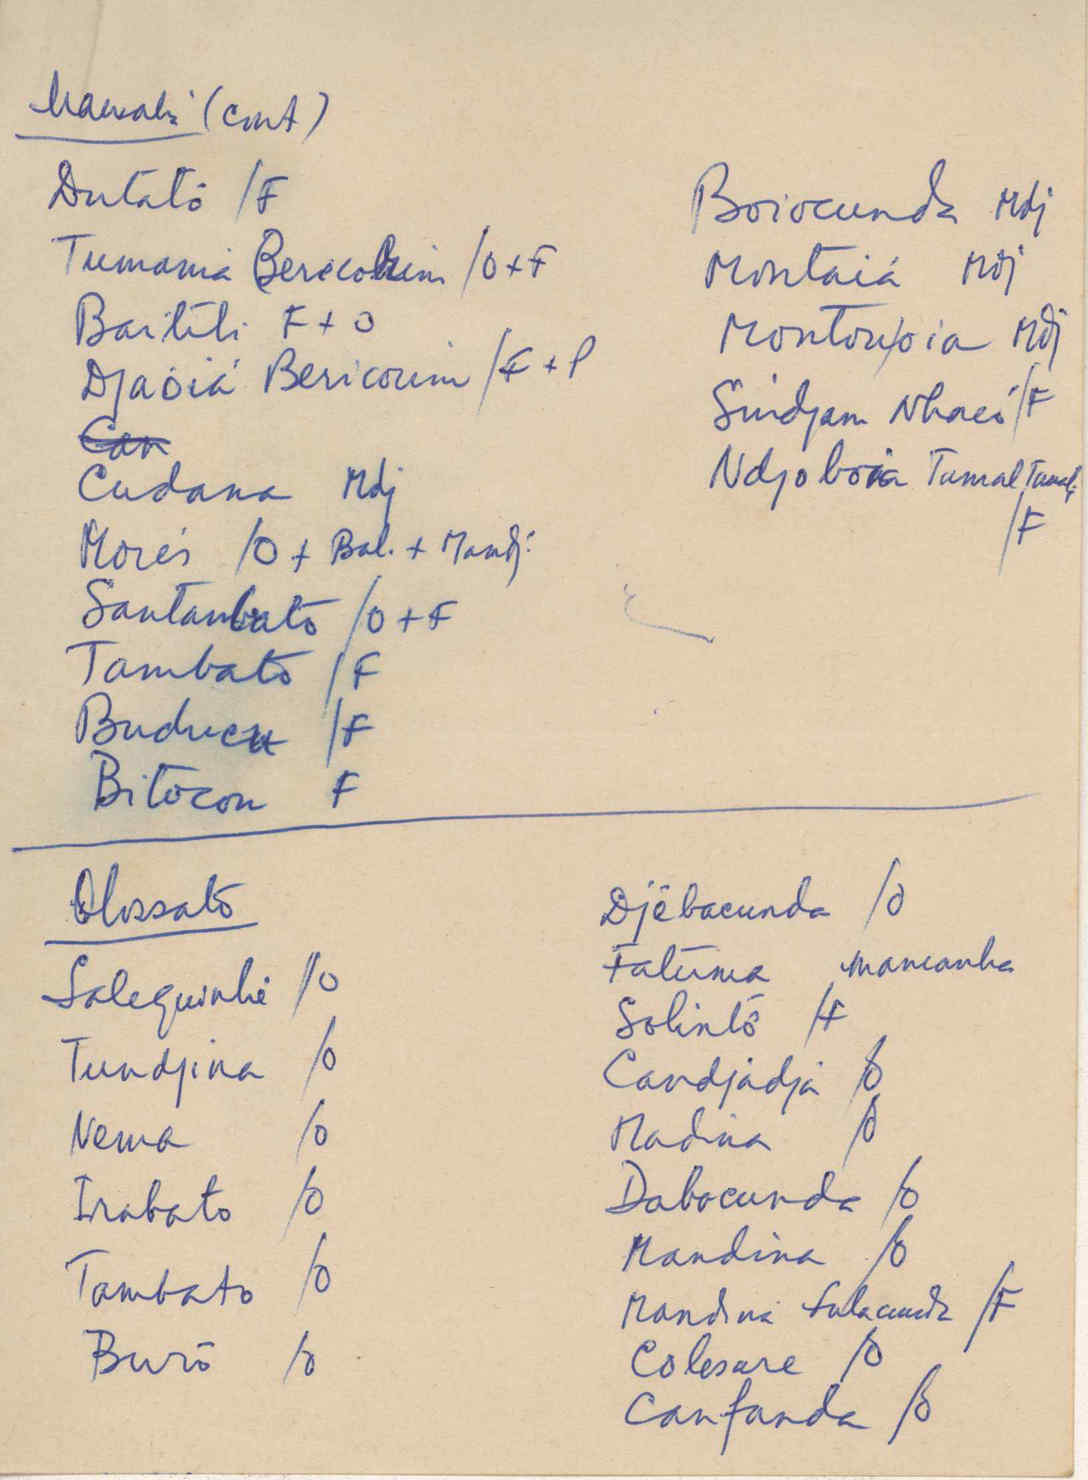 Mansabá (cont)
Dutató /F
Tumania Bericolum /O+F
Bantili F+O
Djaoiá Bericorim /F+P
Can
Cudana Mdj
Morés /O + Bal. + Mandj.
Santambato /O+F
Tambato /F
Buducu /F
Bitocon F
Boiocunda Mdj
Montaiá Mdj
Montoupia Mdj
Sindjam Nhacó /F
Ndjoboia Tumal Tumal
/F
Olossato
Salequinhé /O
Tundjina /O
Nema /O
Irabato /O
Tambato /O
Buró /O
Djêbacunda /O
Fatuma mancanha
Solintó /F
Candjadjá /O
Madina /O
Dabacunda /O
Mandina /O
Mandina fulacunda /F
Colesare /O
Canfanda /O